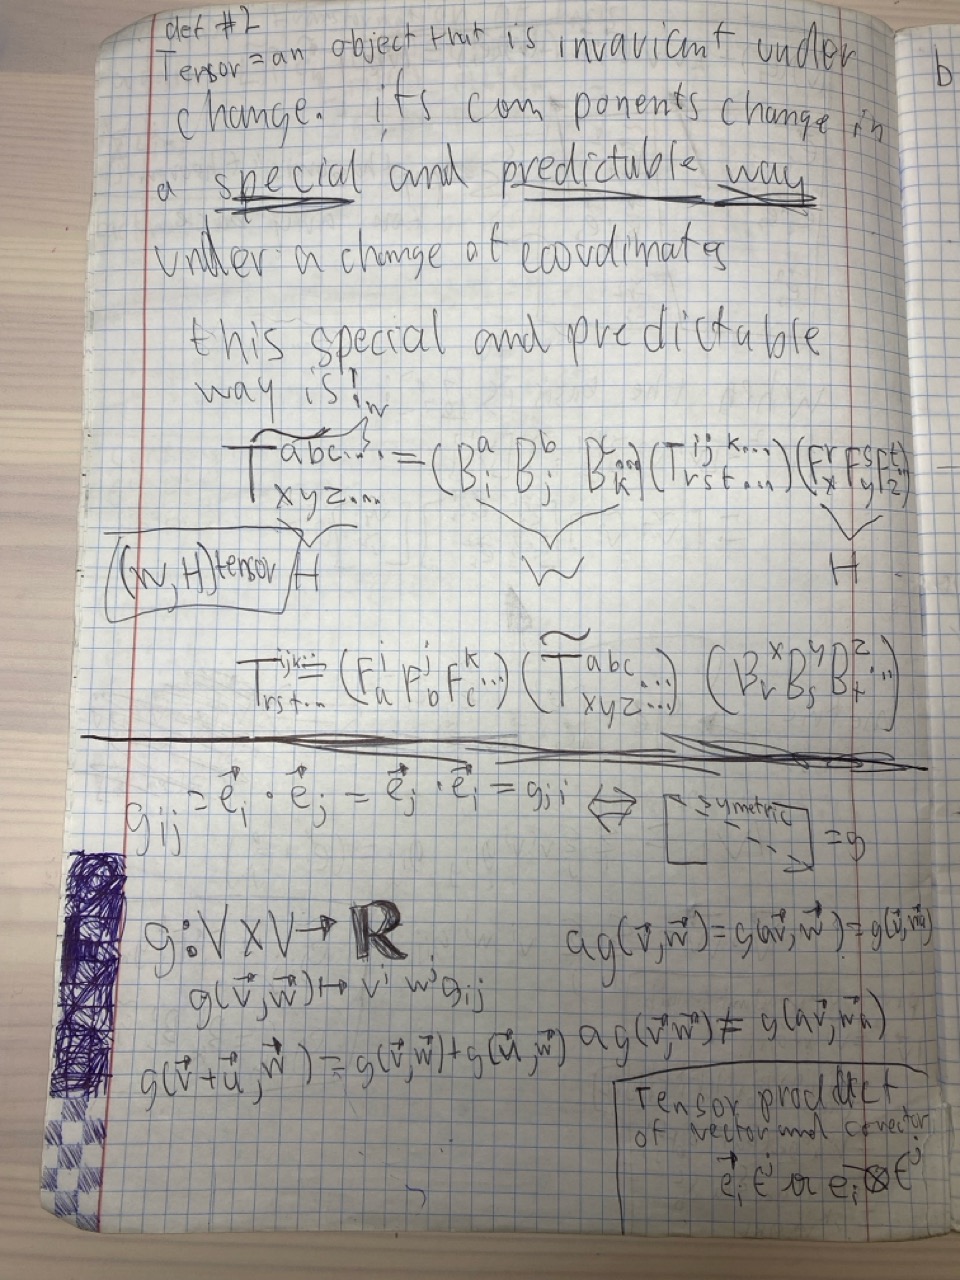 def #2
Tensor = an object that is invariant under
change. its components change in
a special and predictable way
under a change of coordinates
this special and predictable
way is!
W
T̃^{abc...}_{xyz...} = (B^a_i B^b_j B^c_k...)(T^{ijk...}_{rst...})(F^r_x F^s_y F^t_z...)
(W,H) tensor H W H
T^{ijk...}_{rst...} = (F^i_a F^j_b F^k_c...)(T̃^{abc...}_{xyz...})(B^x_r B^y_s B^z_t...)
g_{ij} = e⃗_i · e⃗_j = e⃗_j · e⃗_i = g_{ji} ⇔ [symetric] = g
g: V x V → R
a g(v⃗, w⃗) = g(av⃗, w⃗) = g(v⃗, w⃗a)
g(v⃗, w⃗) ↦ v^i w^j g_{ij}
a g(v⃗, w⃗) ≠ g(av⃗, w⃗a)
g(v⃗+u⃗, w⃗) = g(v⃗, w⃗) + g(u⃗, w⃗)
Tensor product
of vector and covector
e⃗_i ε^j or e_i ⊗ ε^j
b